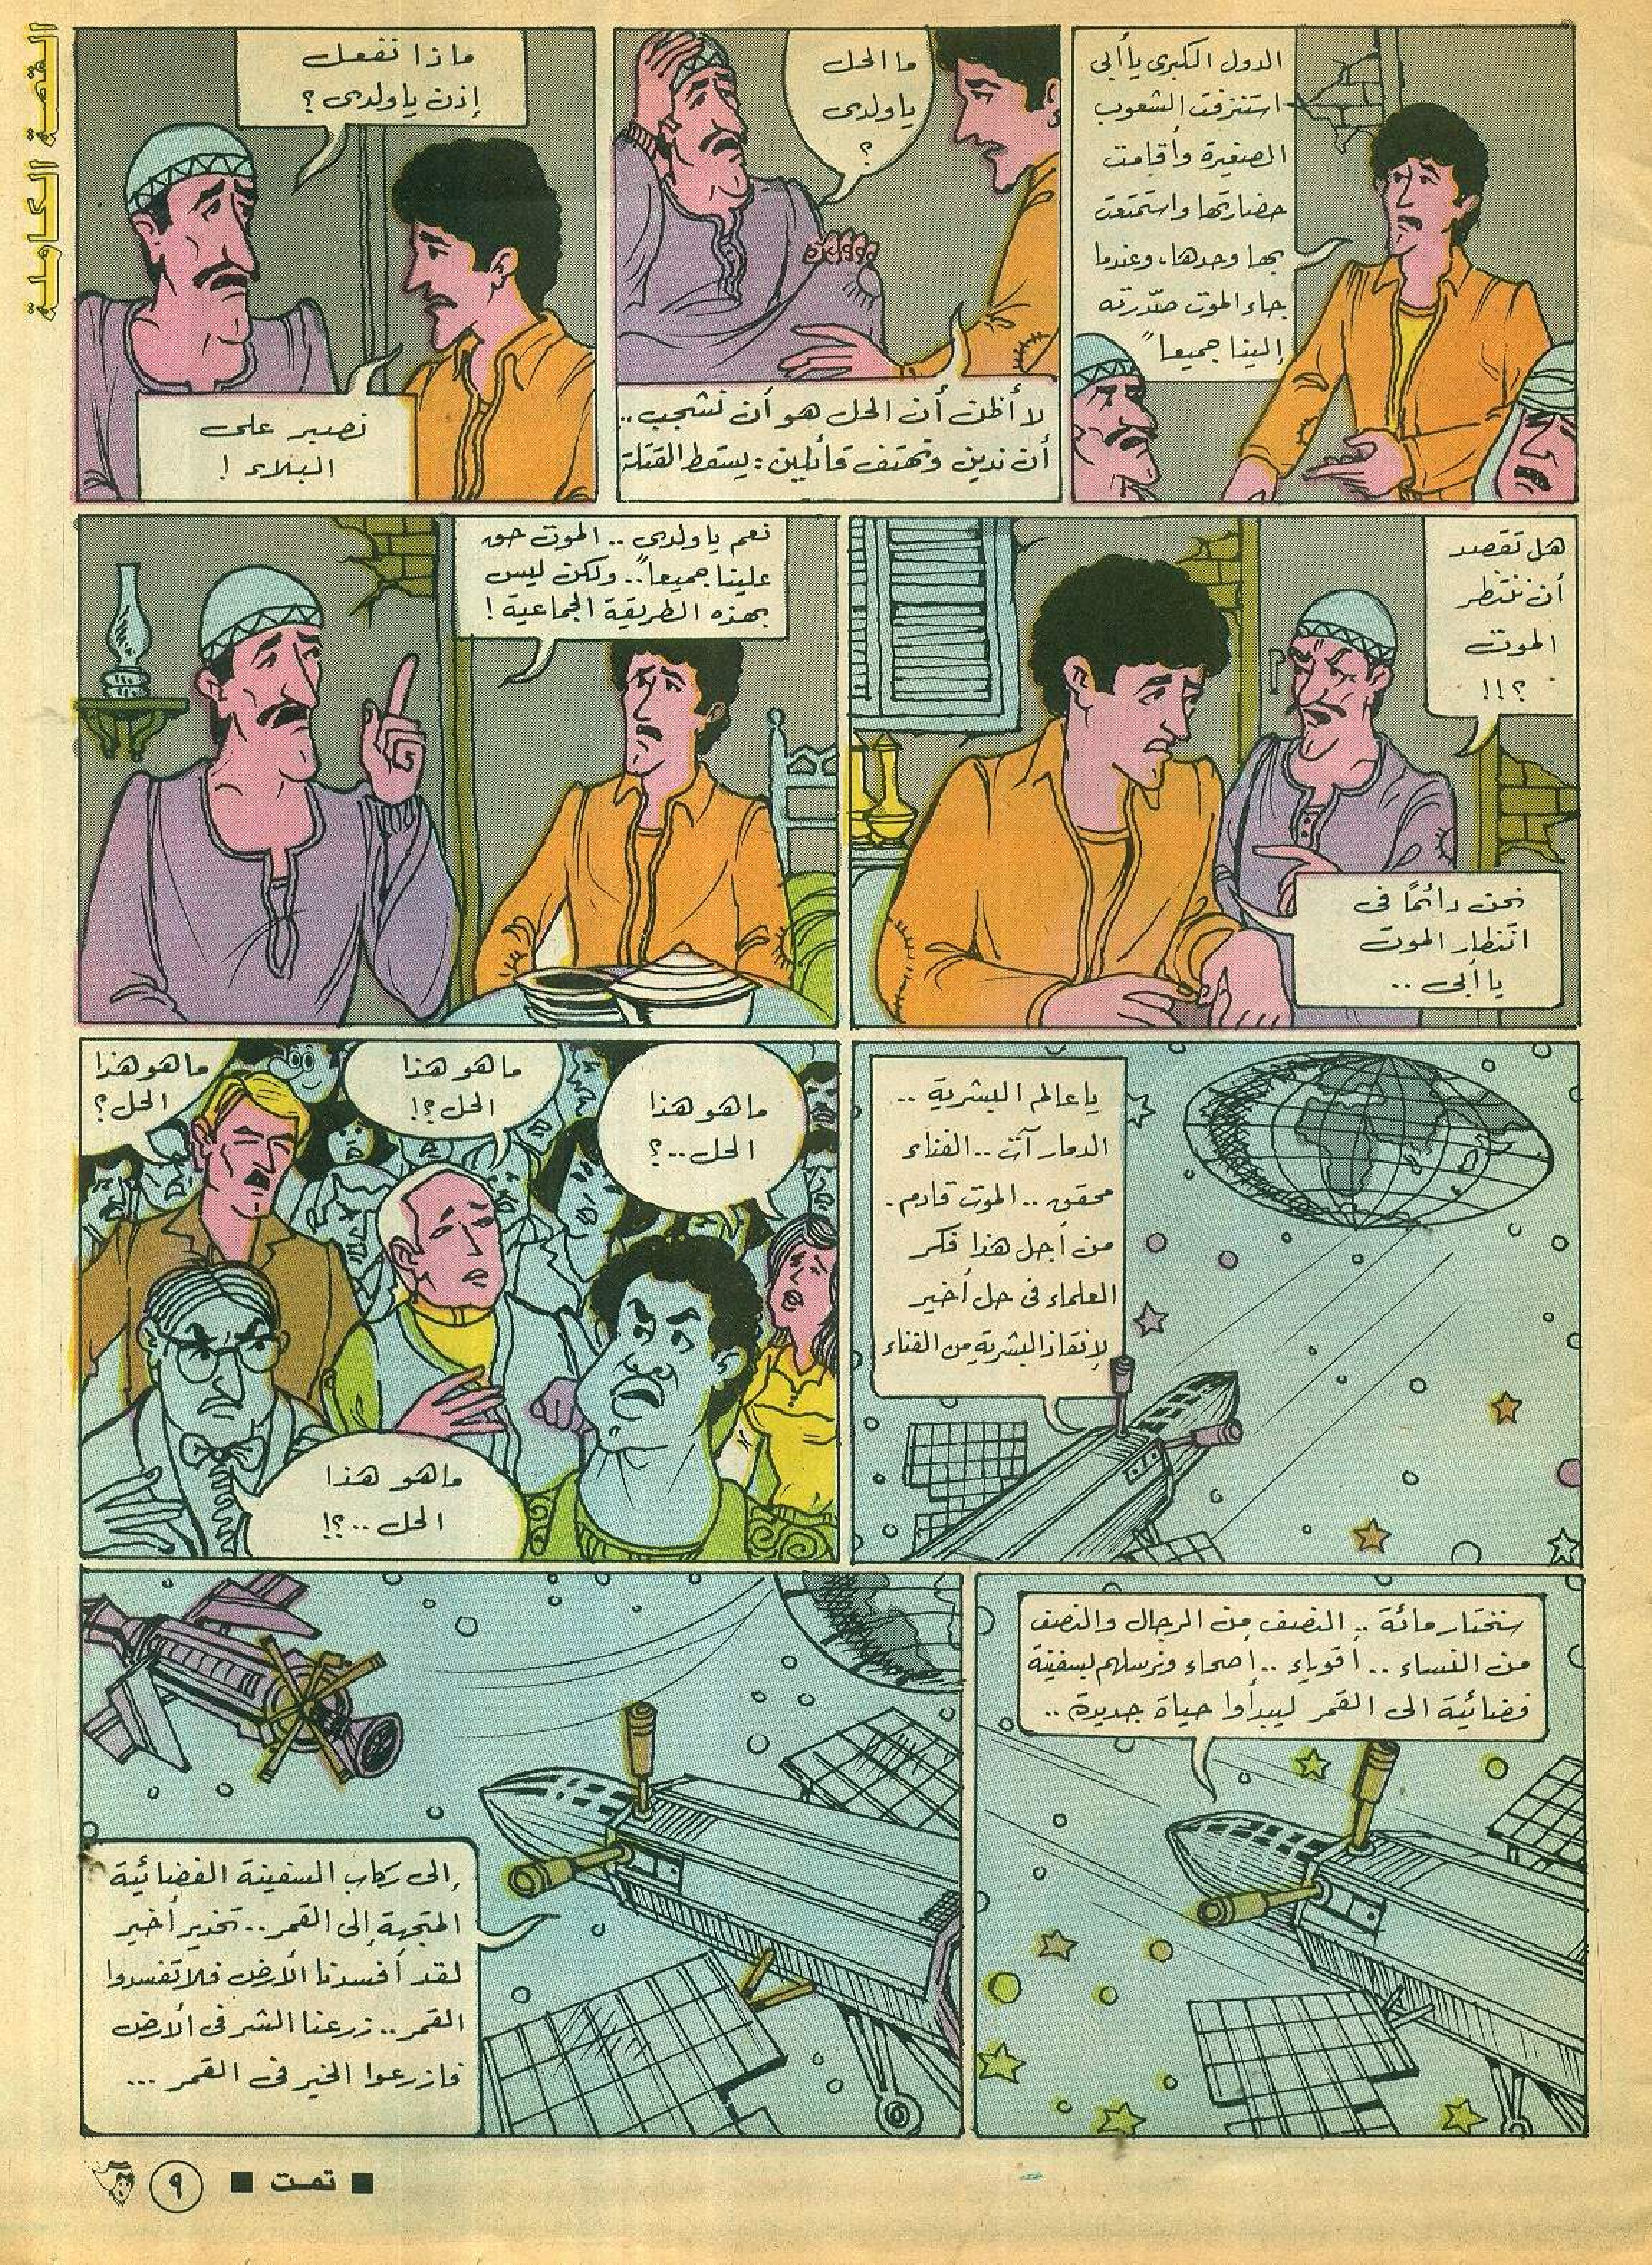 القصة الكاملة
الدول الكبرى يا أبى
استنزفت الشعوب
الصغيرة وأقامت
حضارتها واستمتعت
بها وحدها، وعندما
جاء الموت صدّرته
إلينا جميعاً
ما الحل
يا ولدى
؟
لا أظن أن الحل هو أن نشجب ..
أن ندين ونهتف قائلين : يسقط القتلة
ماذا نفعل
إذن يا ولدى ؟
نصبر على
البلاء !
هل تقصد
أن ننتظر
الموت
؟!!
نحن دائمًا فى
انتظار الموت
يا أبى ..
نعم يا ولدى .. الموت حق
علينا جميعاً .. ولكن ليس
بهذه الطريقة الجماعية !
يا عالم البشرية ..
الدمار آت .. الفناء
محقق .. الموت قادم .
من أجل هذا فكر
العلماء فى حل أخير
لإنقاذ البشرية من الفناء
ما هو هذا
الحل .. ؟
ما هو هذا
الحل ؟!
ما هو هذا
الحل ؟
ما هو هذا
الحل .. ؟!
سنختار مائة .. النصف من الرجال والنصف
من النساء .. أقوياء .. أصحاء ونرسلهم بسفينة
فضائية الى القمر ليبدأوا حياة جديدة ..
إلى ركاب السفينة الفضائية
المتجهة إلى القمر .. تحذير أخير
لقد أفسدنا الأرض فلا تفسدوا
القمر .. زرعنا الشر فى الأرض
فازرعوا الخير فى القمر ...
■ تمت ■ ٩